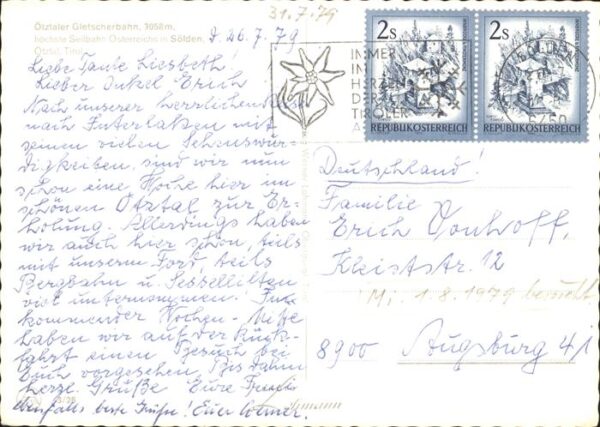 Ötztaler Gletscherbahn, 3058m,
höchste Seilbahn Österreichs in Sölden,
Ötztal, Tirol
31.7.79
d 26.7.79
Liebe Tante Liesbeth!
Lieber Onkel Erich
Nach unserer herrlichen
nach Interlaken mit
seinen vielen Sehenswür-
digkeiten, sind wir nun
schon eine Woche hier im
schönen Ötztal zur Er-
holung. Allerdings haben
wir auch hier schon, teils
mit unserem Ford, teils
Bergbahn u. Sessellilten
viel unternommen! Ende
kommender Wochen-Mitte
haben wir auf der Rück-
fahrt einen Besuch bei
Euch vorgesehen, Bis dahin
herzl. Grüße Eure
ebenfalls beste Grüße! Euer
IMMER
IM
HERZEN
DER
TIROLER
2s
REPUBLIK ÖSTERREICH
2s
REPUBLIK ÖSTERREICH
SÖLDEN
6450
Deutschland!
Familie
Erich Vonhoff,
Kleiststr. 12
Mi, 1.8.1979 besucht
8900 Augsburg 41